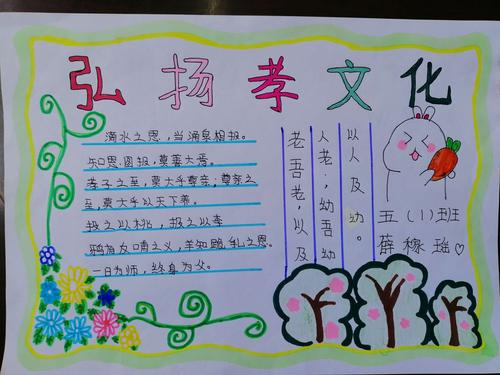 弘扬孝文化
滴水之恩，当涌泉相报。
知恩图报，莫善大焉。
孝子之至，莫大乎尊亲，尊亲之
至，莫大乎以天下养。
投之以桃，报之以李
鸦有反哺之义，羊知跪乳之恩。
一日为师，终身为父。
老吾老，以及
人老；幼吾幼
以人及幼。
五（1）班
薛稼瑶